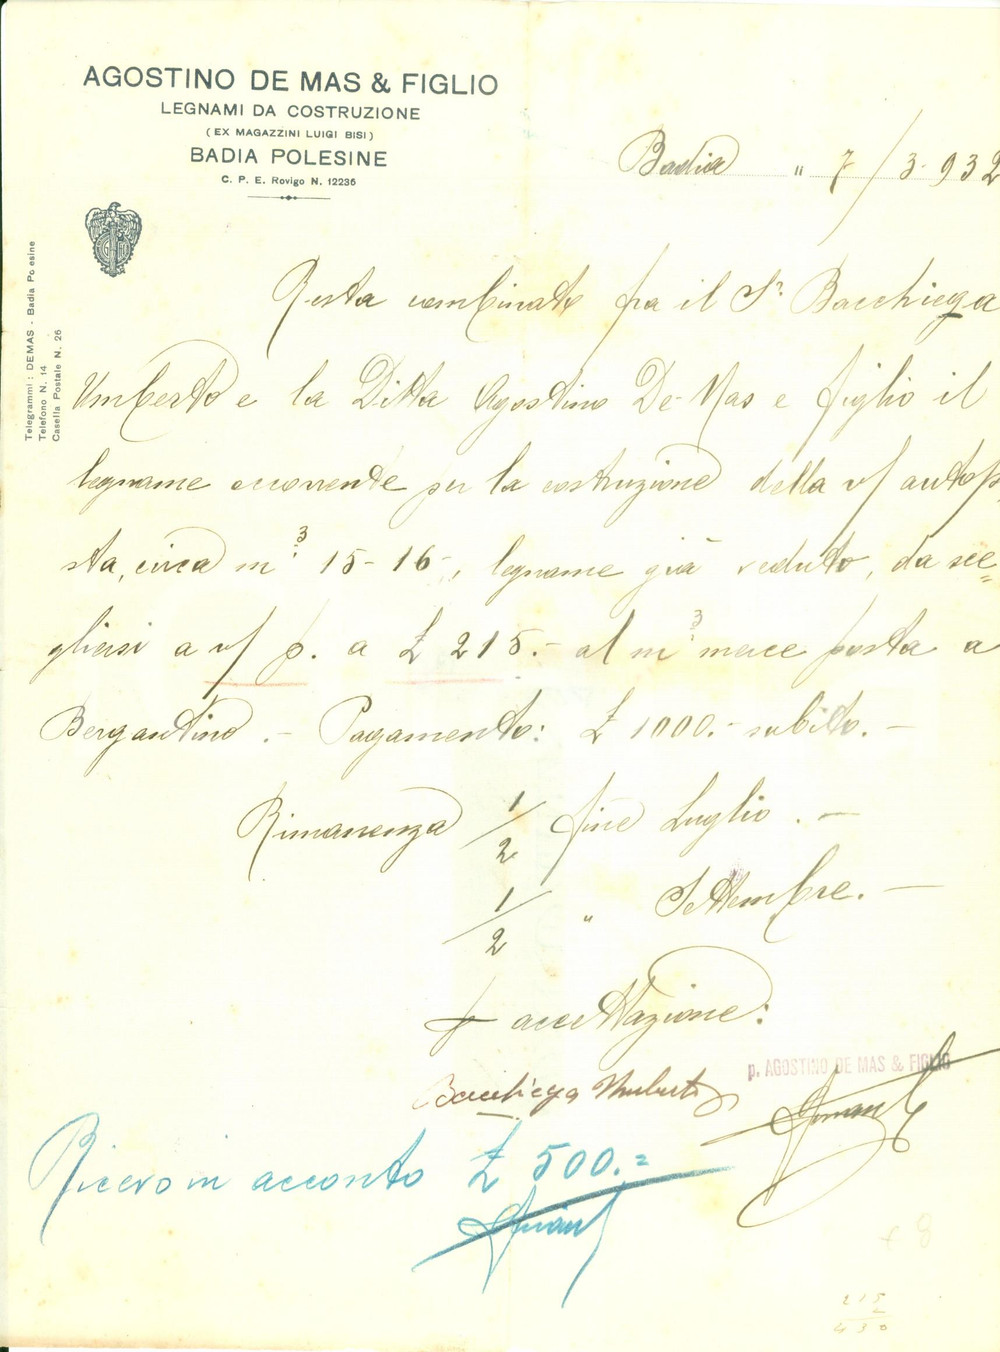 AGOSTINO DE MAS & FIGLIO
LEGNAMI DA COSTRUZIONE
( EX MAGAZZINI LUIGI BISI )
BADIA POLESINE
C. P. E. Rovigo N. 12236
Telegrammi : DEMAS - Badia Polesine
Telefono N. 14
Casella Postale N. 26
Badia " 7/3-932
Resta combinato fra il Sr. Bacchiega
Umberto e la Ditta Agostino De-Mas e figlio il
legname occorrente per la costruzione della v/ autop
sta, circa m3 15-16-, legname già veduto, da sce=
gliersi a v/ p. a £ 215.- al m3 merce posta a
Bergantino .- Pagamento: £ 1000.- subito.-
Rimanenza 1/2 fine Luglio . -
1/2 " Settembre. -
p accettazione:
Bacchiega Umberto
p. AGOSTINO DE MAS & FIGLIO
Ricevo in acconto £ 500.=
+ 8
215
2
430